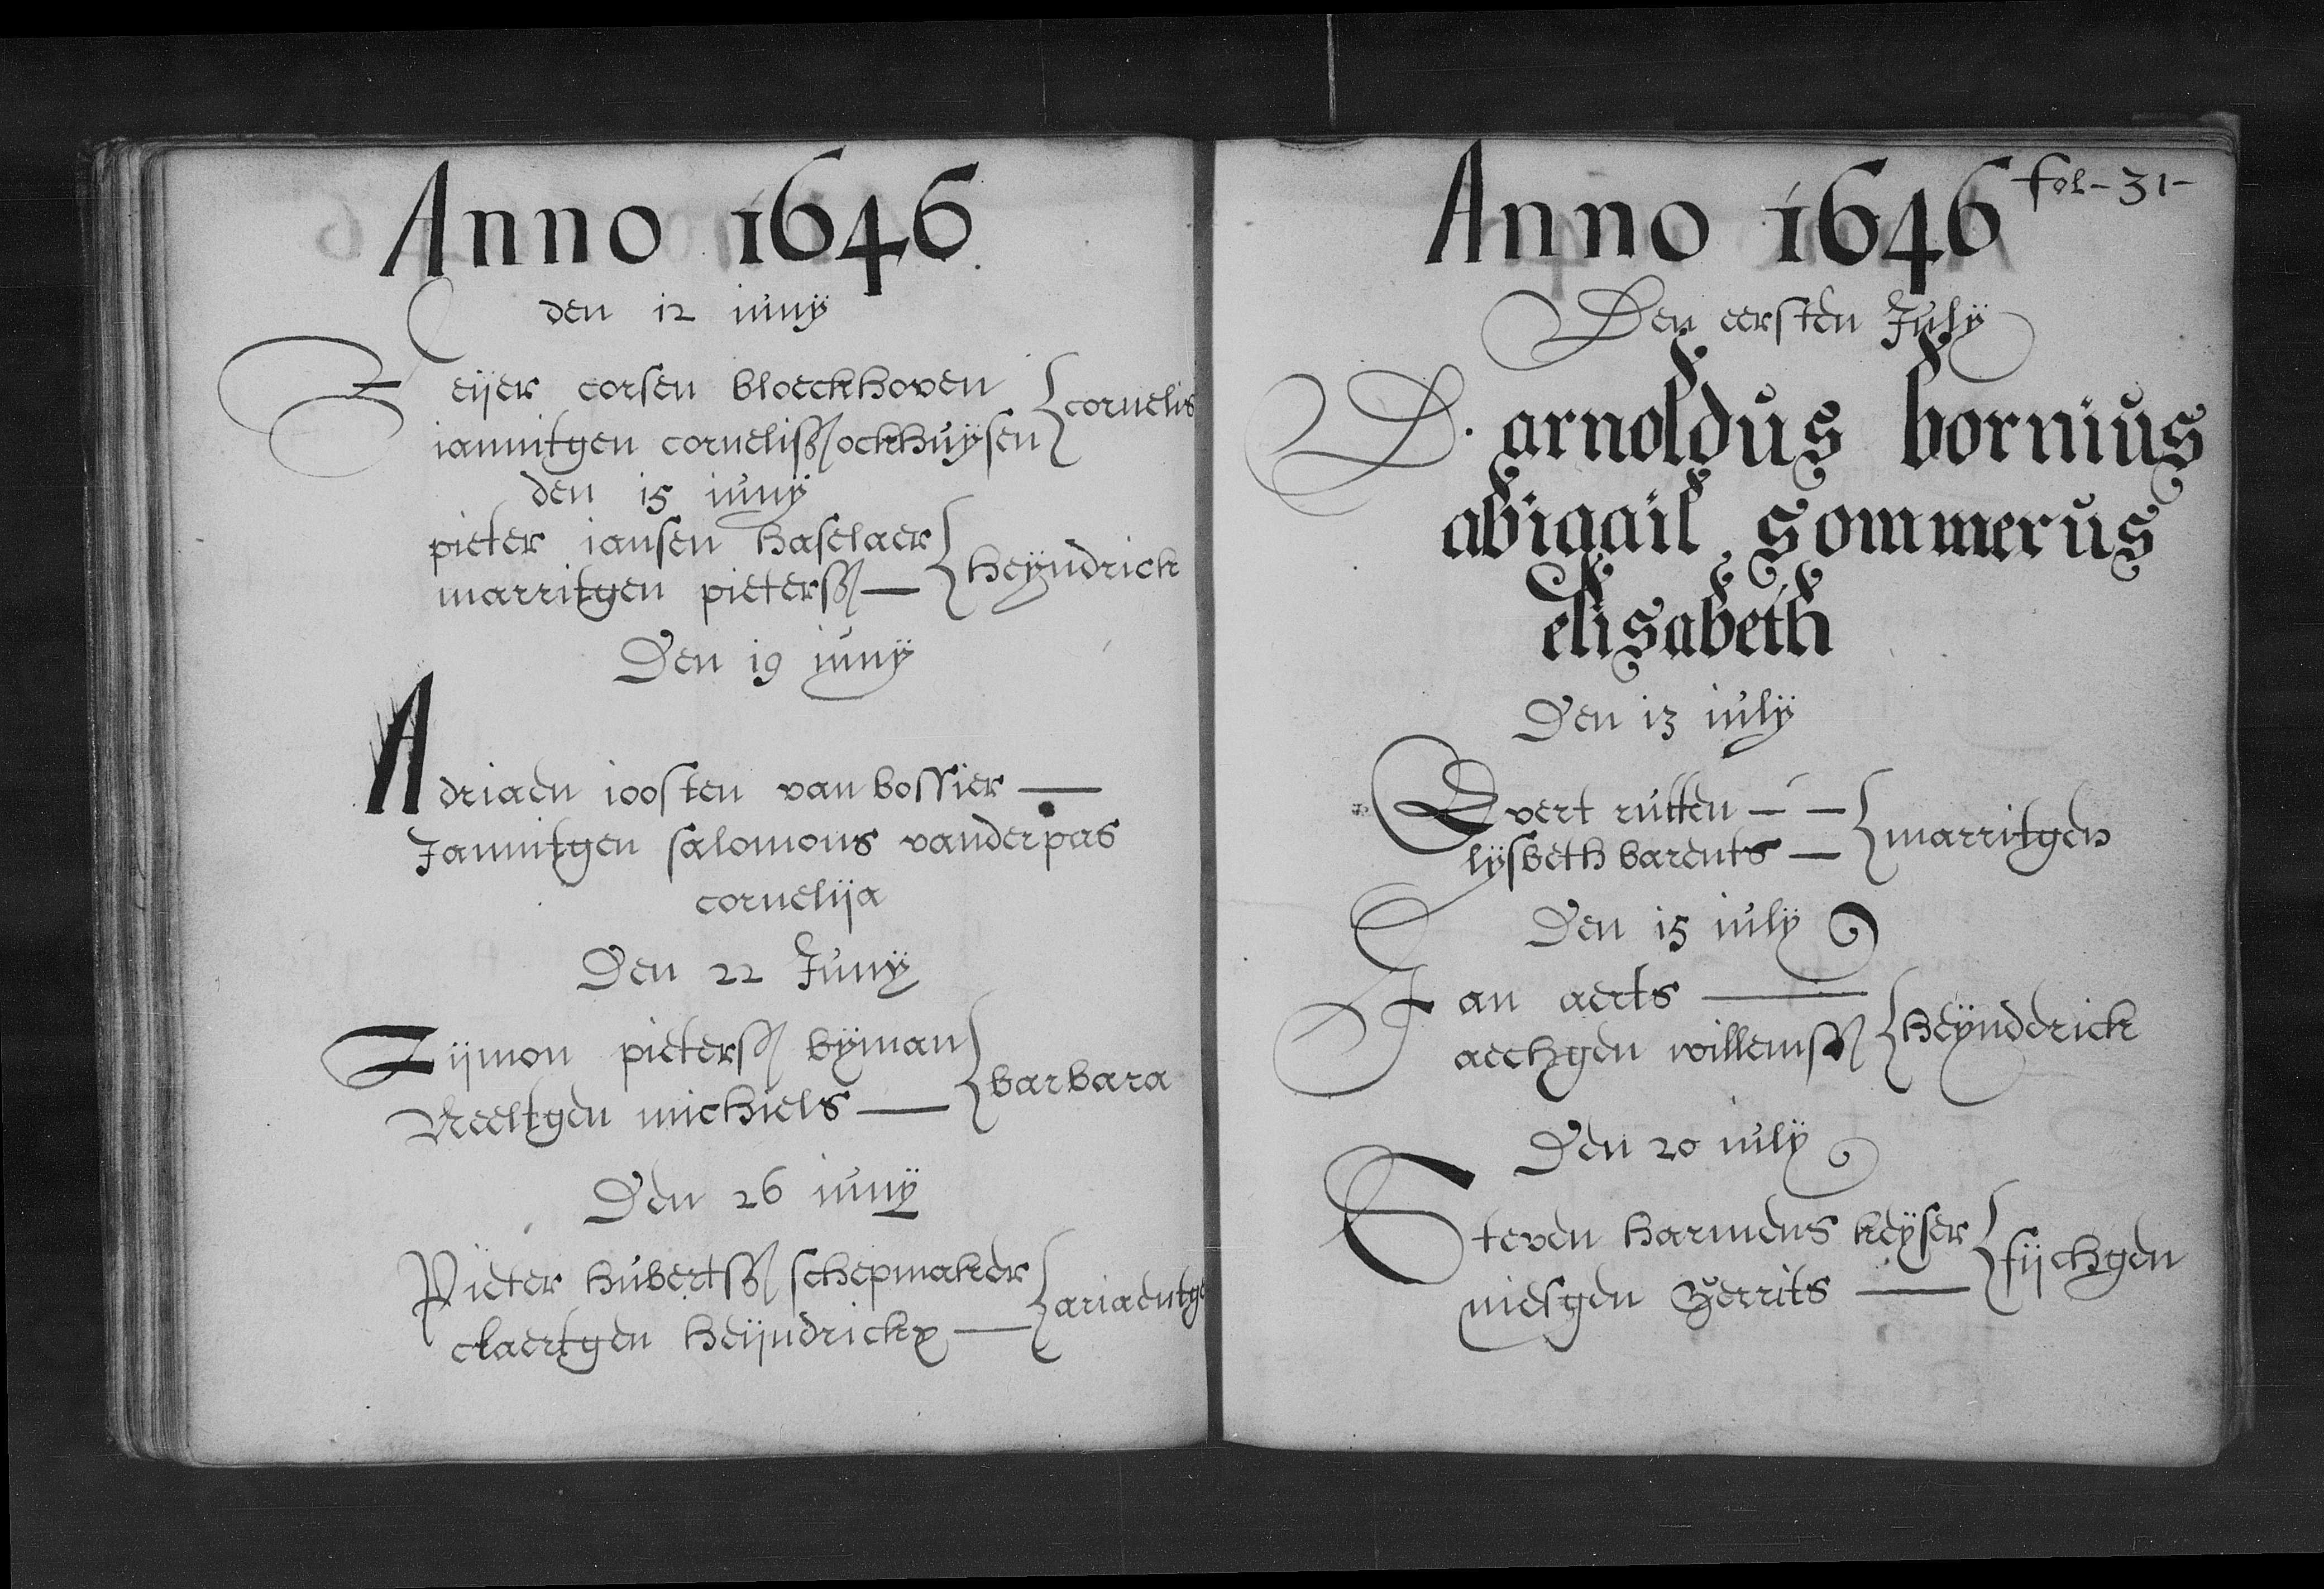 Anno 1646
den 12 iunÿ
Zeijer corsen bloeckhoven
iannitgen cornelisß ockhuÿsen
cornelis
den 15 iunÿ
pieter iansen haselaer
marritgen pietersß —
heÿndrick
Den 19 iunÿ
Adriaen ioosten van bossier —
Jannitgen salomons vanderpas
cornelija
Den 22 Junÿ
Zijmon pietersß bÿman
Neeltgen michiels —
barbara
Den 26 iunÿ
Pieter hubertsß schepmaker
claertgen heijndrickx —
ariaentge
Anno 1646
fol-31-
Den eersten Julÿ
D. arnoldus bornius
abigail sommerus
elisabeth
Den 13 iulÿ
Evert rutten — —
lÿsbeth barents —
marritgen
Den 15 iulÿ
Jan aerts —
aechgen willemsß
heÿnderick
Den 20 iulÿ
Steven harmens keÿser
niesgen Gerrits —
fijchgen